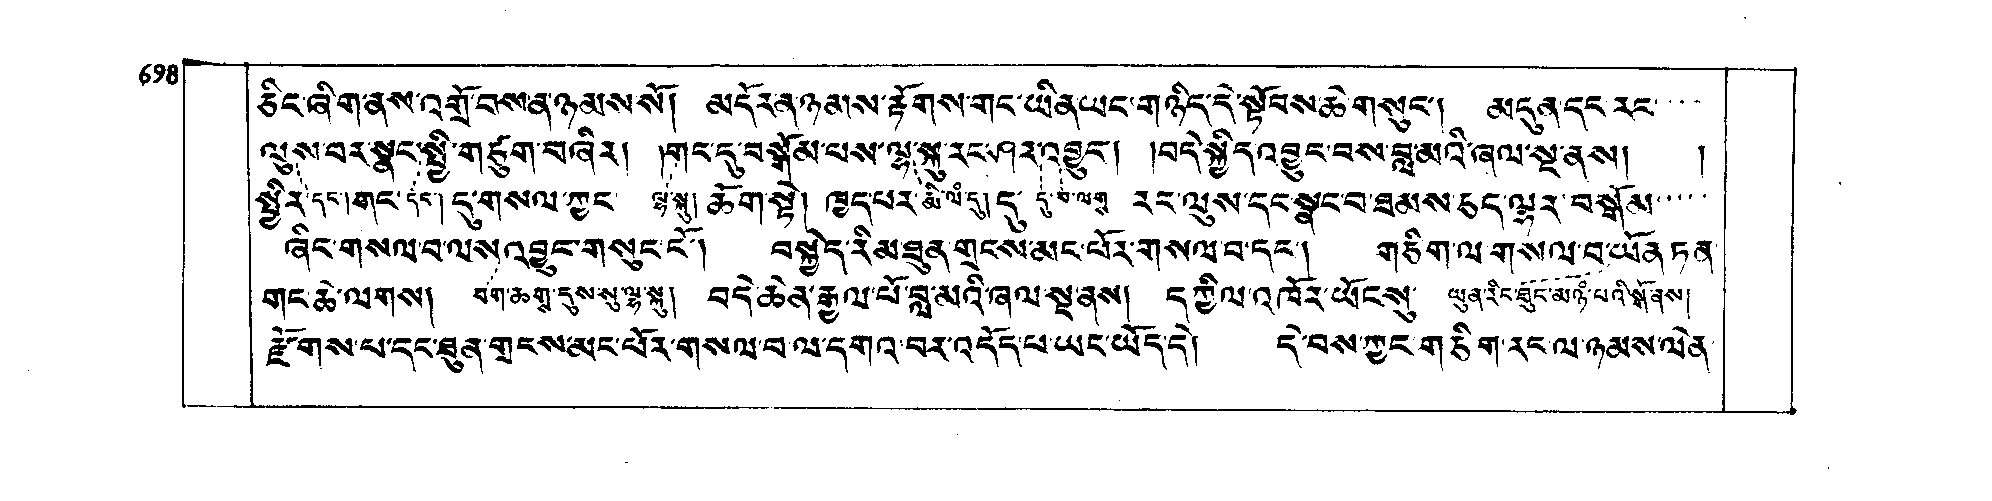 698
ཅིང་ཞིག་ནས་འགྲོ་བས་ན་ཉམས་སོ། མདོར་ན་ཉམས་རྟོགས་གང་ཡིན་ཡང་གཉིད་དེ་སྟོབས་ཆེ་གསུང་། མདུན་དང་རང་
ལུས་བར་སྣང་སྤྱི་གཙུག་བཞིར། །གང་དུ་བསྒོམ་པས་ལྷ་སྐུ་རང་ཤར་འབྱུང་། །བདེ་སྐྱིད་འབྱུང་བས་བླ་མའི་ཞལ་སྔ་ནས། །
སྤྱིར་དང་།གང་དང་།དུ་གསལ་ཀྱང་ ལྷ་སྐུ། ཆོག་སྟེ། ཁྱད་པར་རྨི་ལམ་དུ། དུ རང་ལུས་དང་སྣང་བ་ཐམས་ཅད་ལྷར་བསྒོམ་
ཞིང་གསལ་བ་ལས་འབྱུང་གསུང་ངོ་། བསྐྱེད་རིམ་ཐུན་གྲངས་མང་པོར་གསལ་བ་དང་། གཅིག་ལ་གསལ་བ་ཡོན་ཏན་
གང་ཆེ་ལགས། བག་ཆགས་དུས་སུ་ལྷ་སྐུ། བདེ་ཆེན་རྒྱལ་པོ་བླ་མའི་ཞལ་སྔ་ནས། དཀྱིལ་འཁོར་ཡོངས་སུ་ ཡུན་རིང་
རྫོགས་པ་དང་ཐུན་གྲངས་མང་པོར་གསལ་བ་ལ་དགའ་བར་འདོད་པ་ཡང་ཡོད་དེ། དེ་བས་ཀྱང་གཅིག་རང་ལ་ཉམས་ལེན་